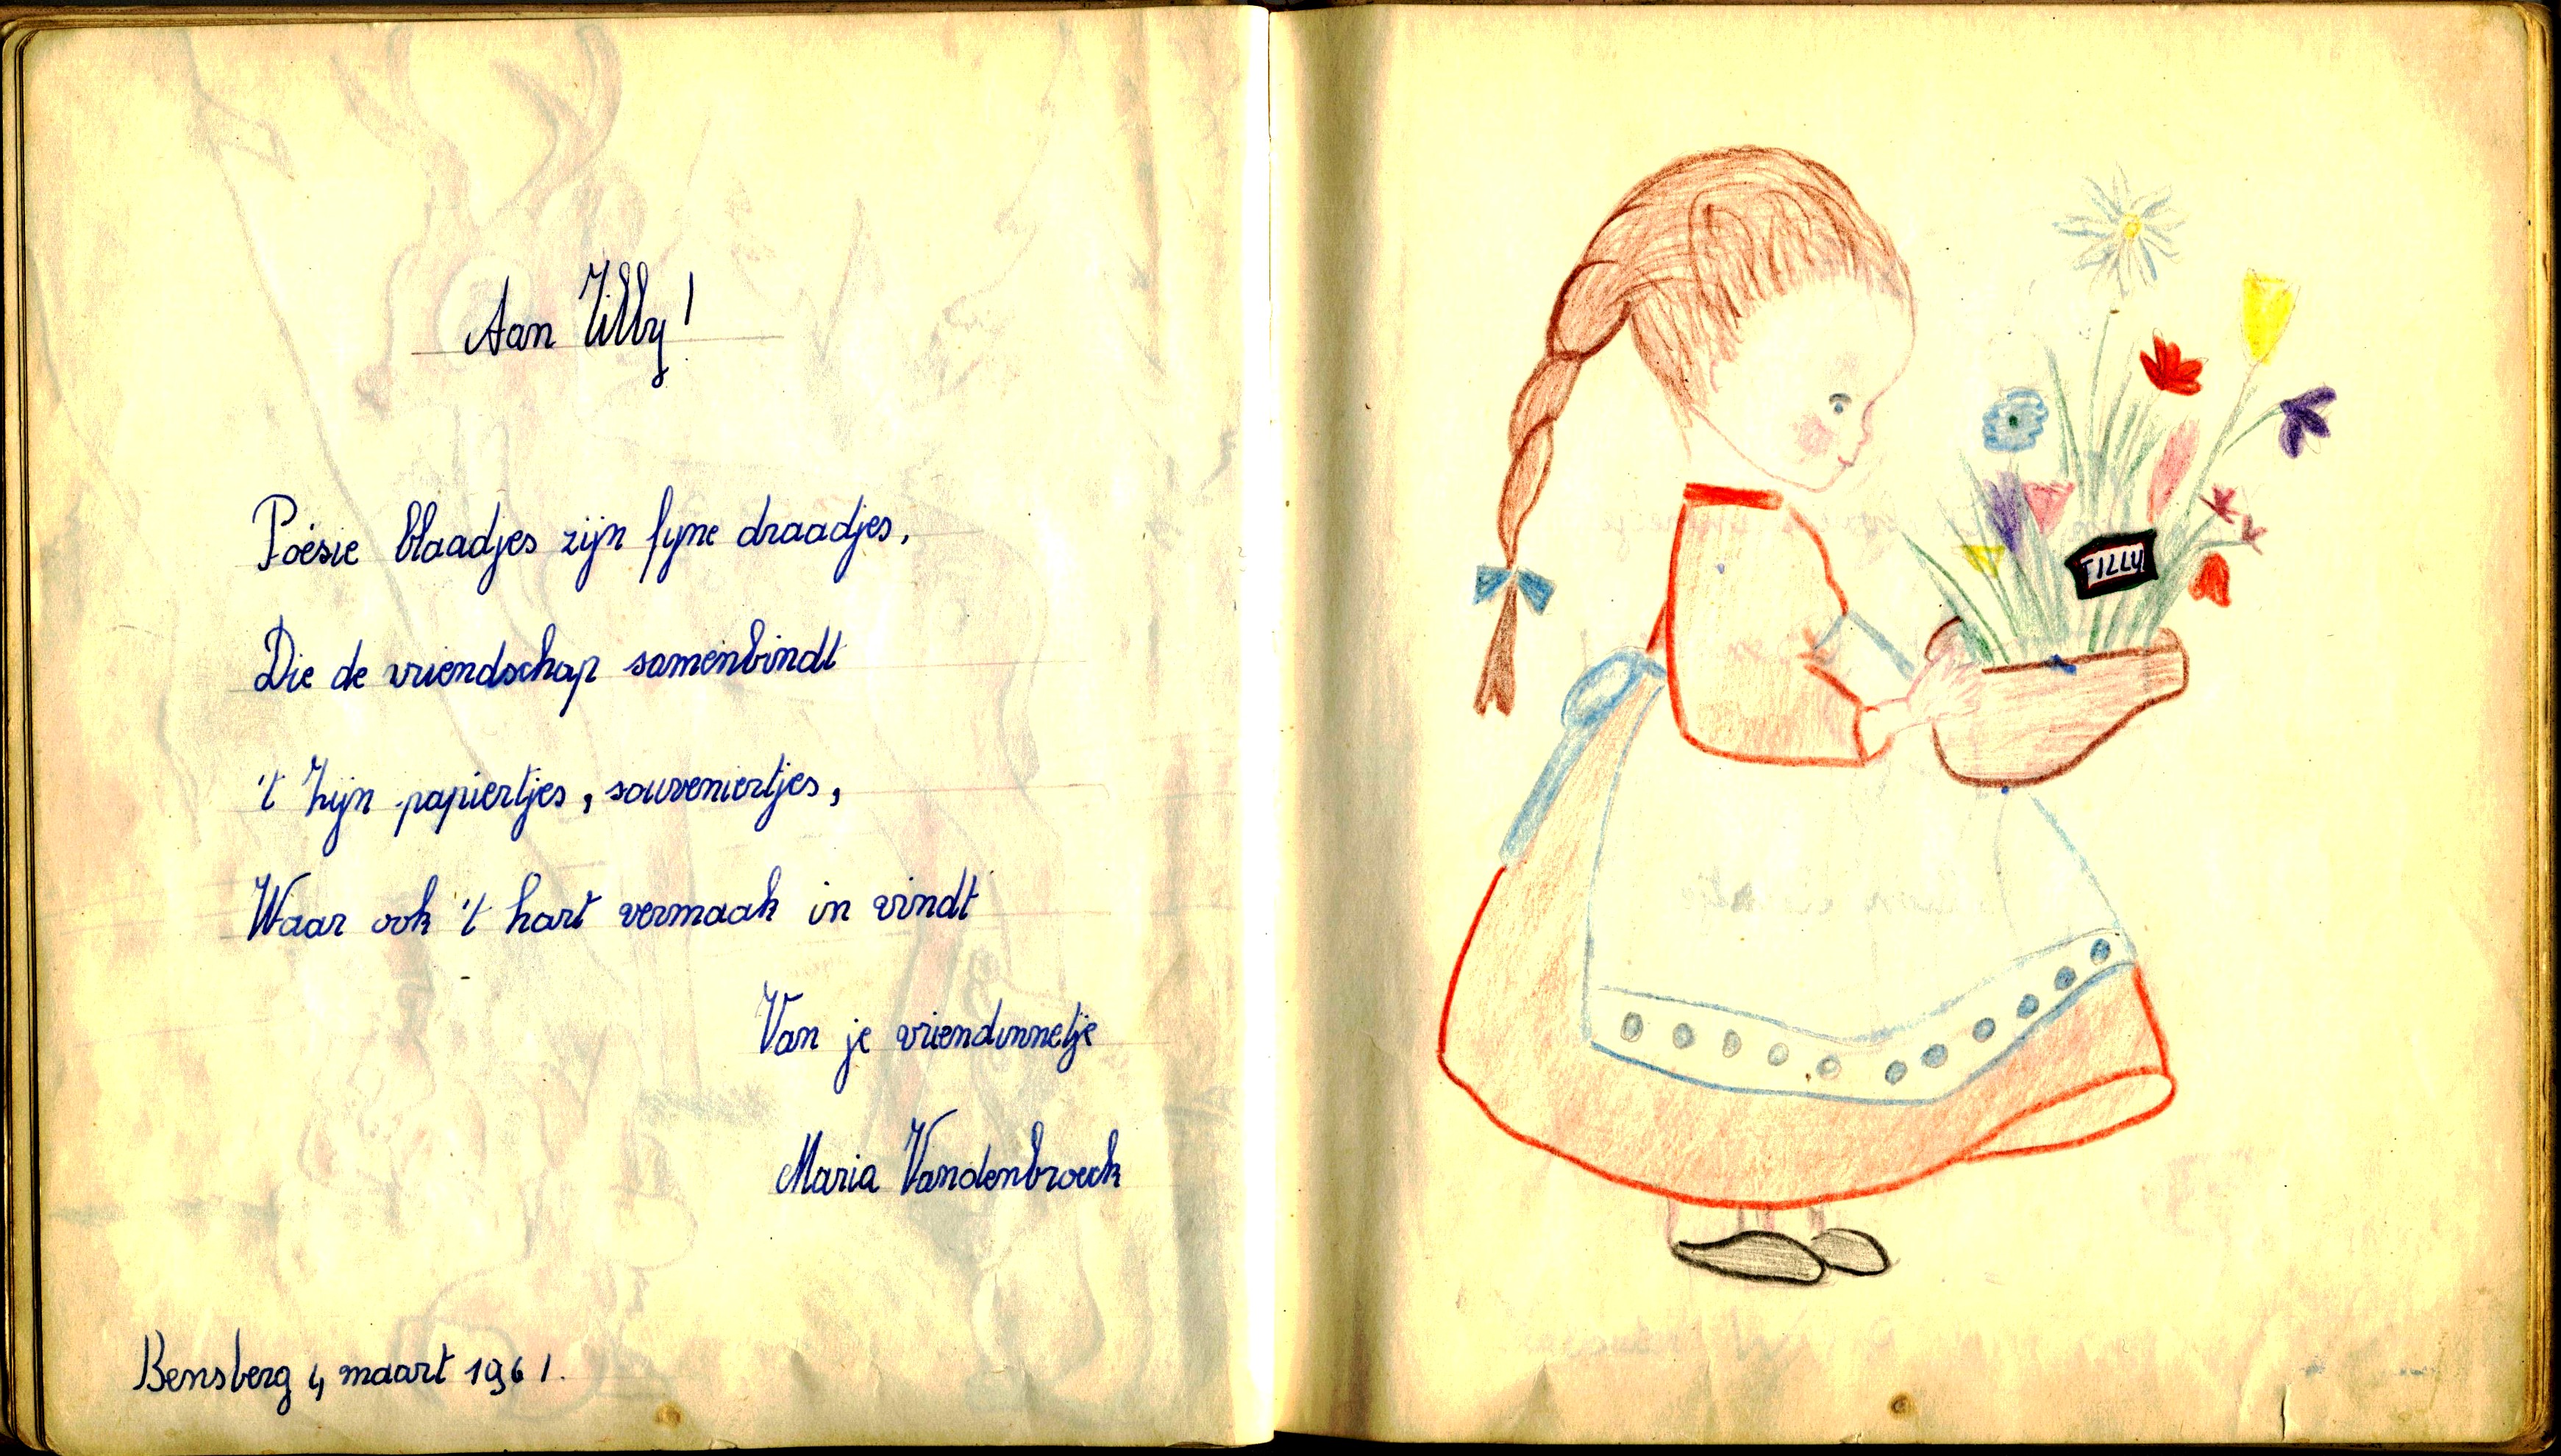 Aan Tilly!
Poësie blaadjes zijn fyne draadjes,
Die de vriendschap samenbindt
't Zijn papiertjes, souveniertjes,
Waar ook 't hart vermaak in vindt
Van je vriendinnetje
Maria Vandenbroeck
Bensberg 4 maart 1961.
TILLY